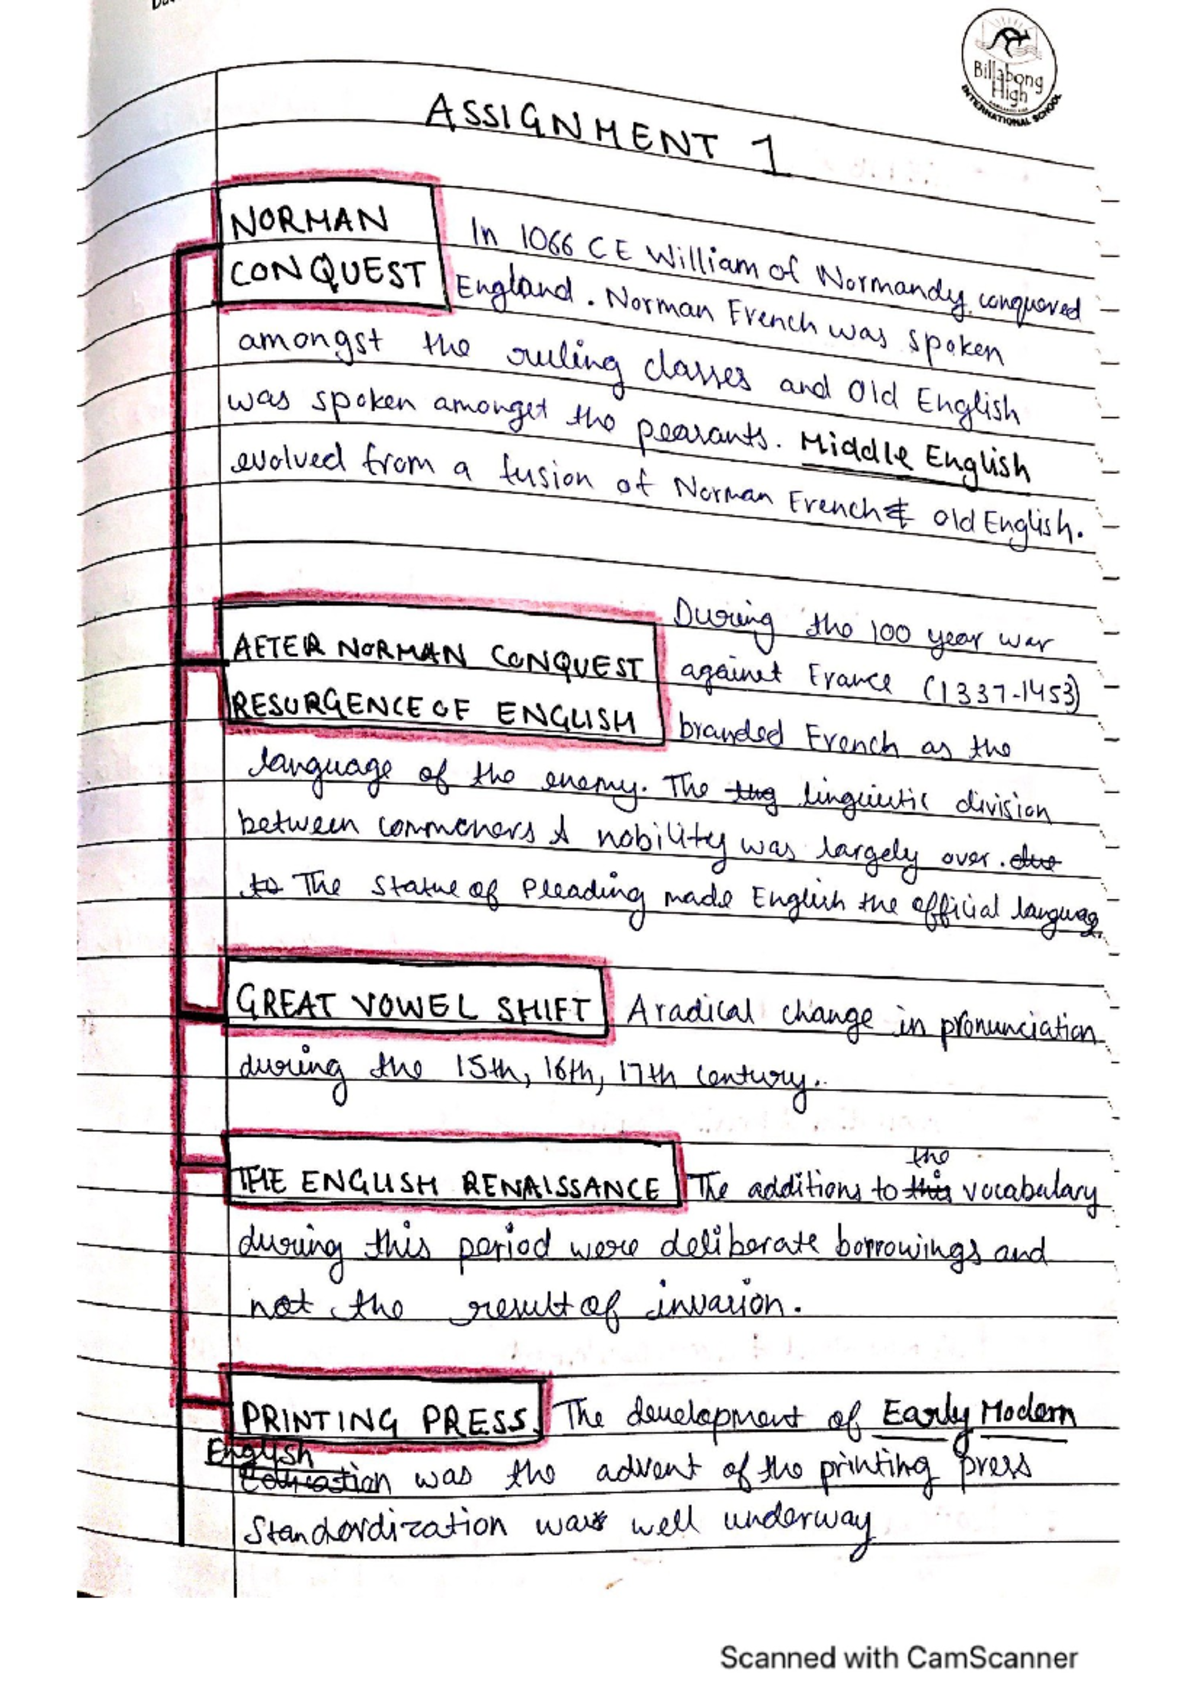 Billabong
High
INTERNATIONAL SCHOOL
ASSIGNMENT 1
NORMAN
CONQUEST
In 1066 CE William of Normandy conquered
England. Norman French was spoken
amongst the ruling classes and Old English
was spoken amongst the peasants. Middle English
evolved from a fusion of Norman French & Old English.
AFTER NORMAN CONQUEST
RESURGENCE OF ENGLISH
During the 100 year war
against France (1337-1453)
branded French as the
language of the enemy. The linguistic division
between commoners & nobility was largely over. due
to The Statue of Pleading made English the official language.
GREAT VOWEL SHIFT A radical change in pronunciation
during the 15th, 16th, 17th century.
the
THE ENGLISH RENAISSANCE The additions to this vocabulary
during this period were deliberate borrowings and
not the result of invasion.
PRINTING PRESS The development of Early Modern
English
Education was the advent of the printing press
Standardization was well underway
Scanned with CamScanner